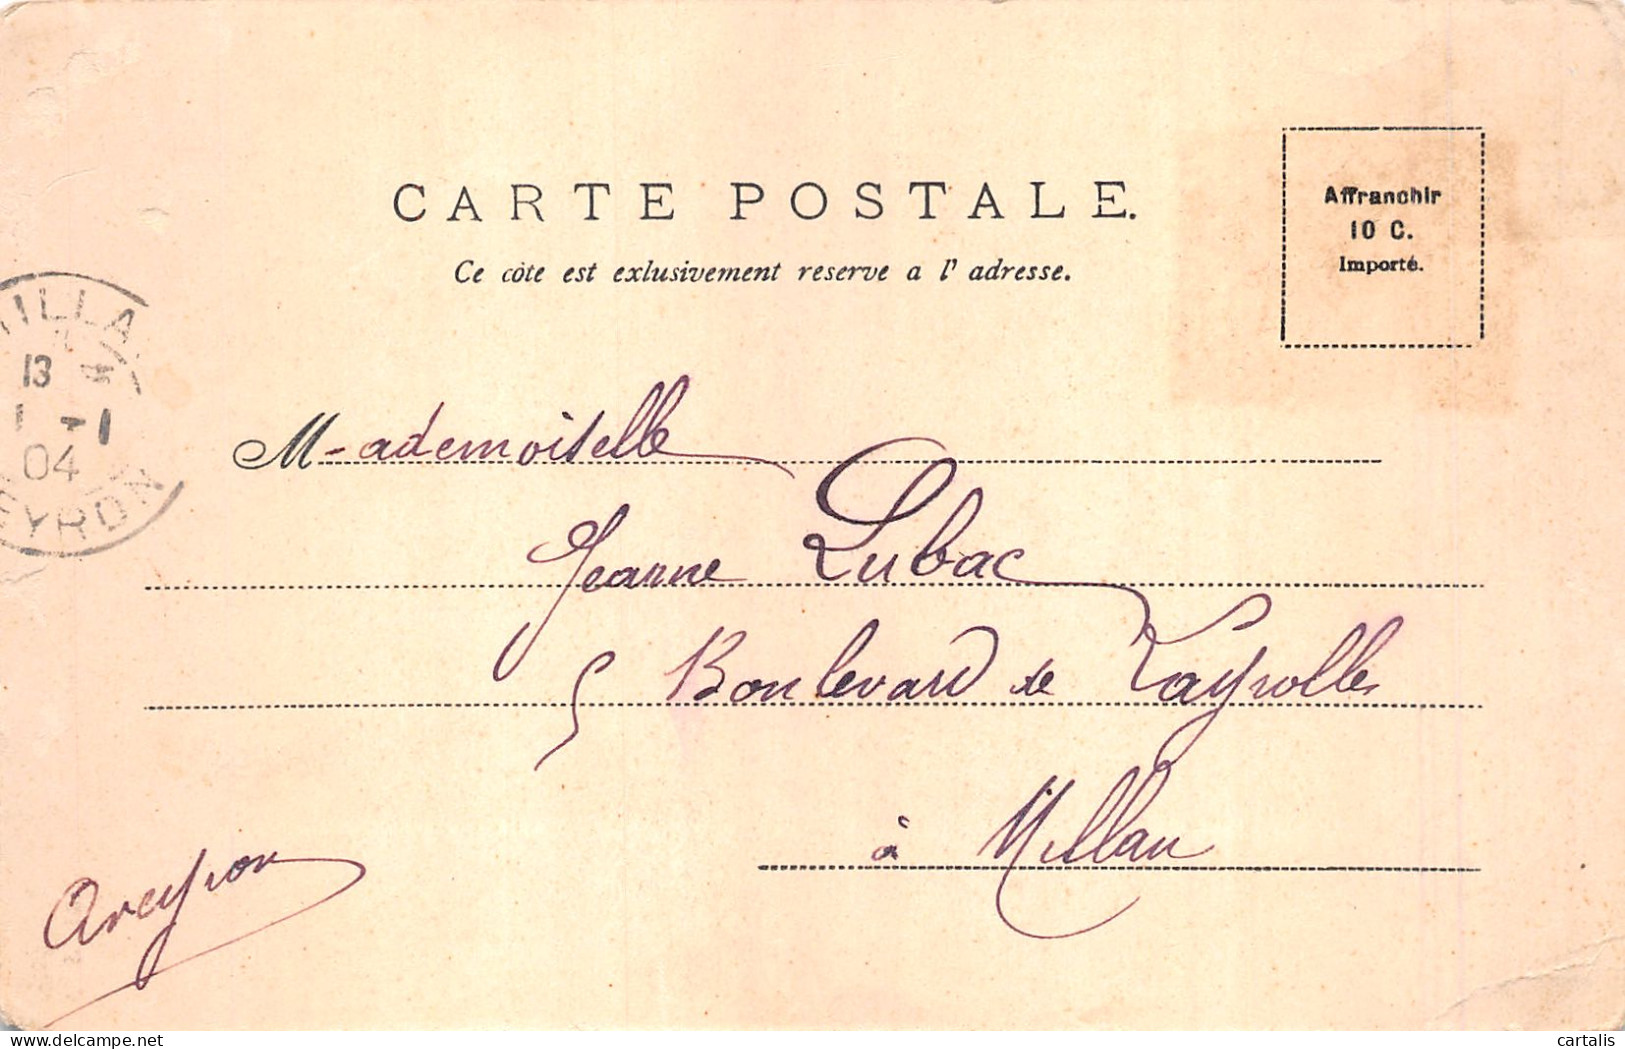 CARTE POSTALE.
Ce côte est exlusivement reserve a l' adresse.
Affranchir
10 C.
Importé.
MILLA
13 4
1 -1
04
EYRON
M-ademoiselle
Jeanne Lubac
5 Boulevard de Layrolle
à Millau
Aveyron
delcampe.net
cartalis